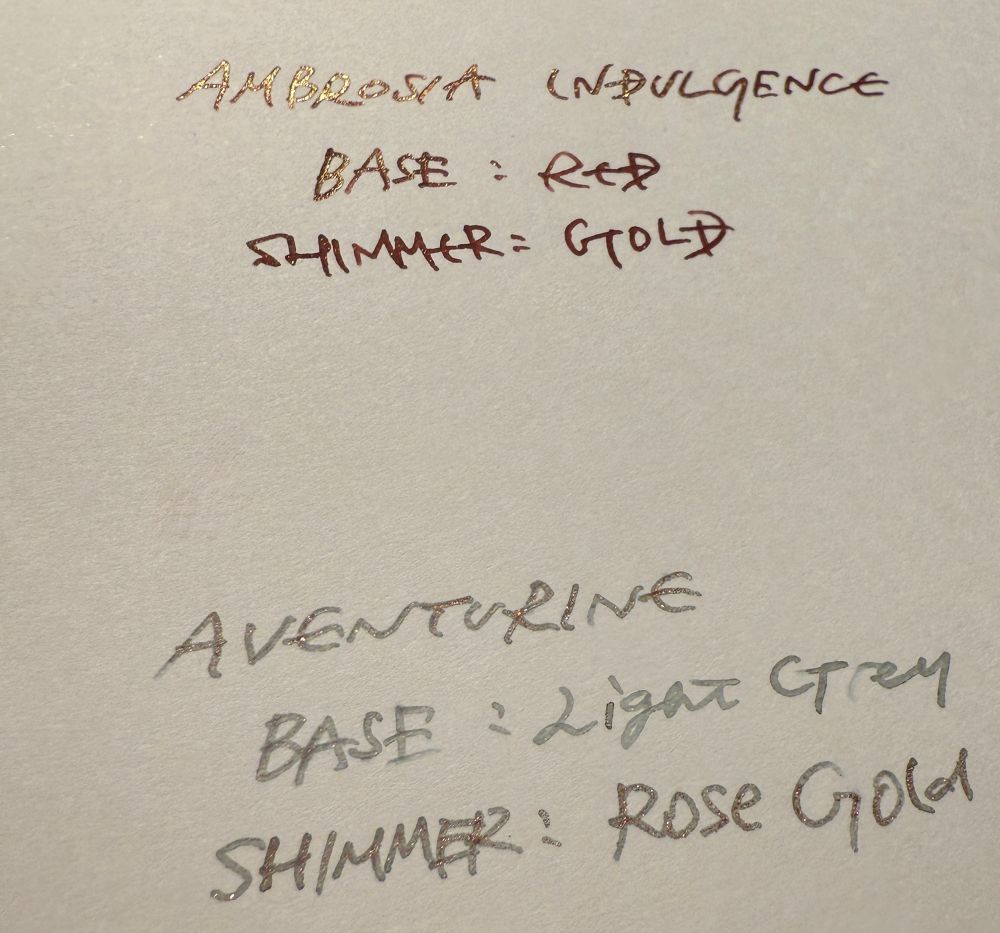 AMBROSIA INDULGENCE
BASE : RED
SHIMMER: GOLD
AVENTURINE
BASE : Light Grey
SHIMMER: Rose Gold